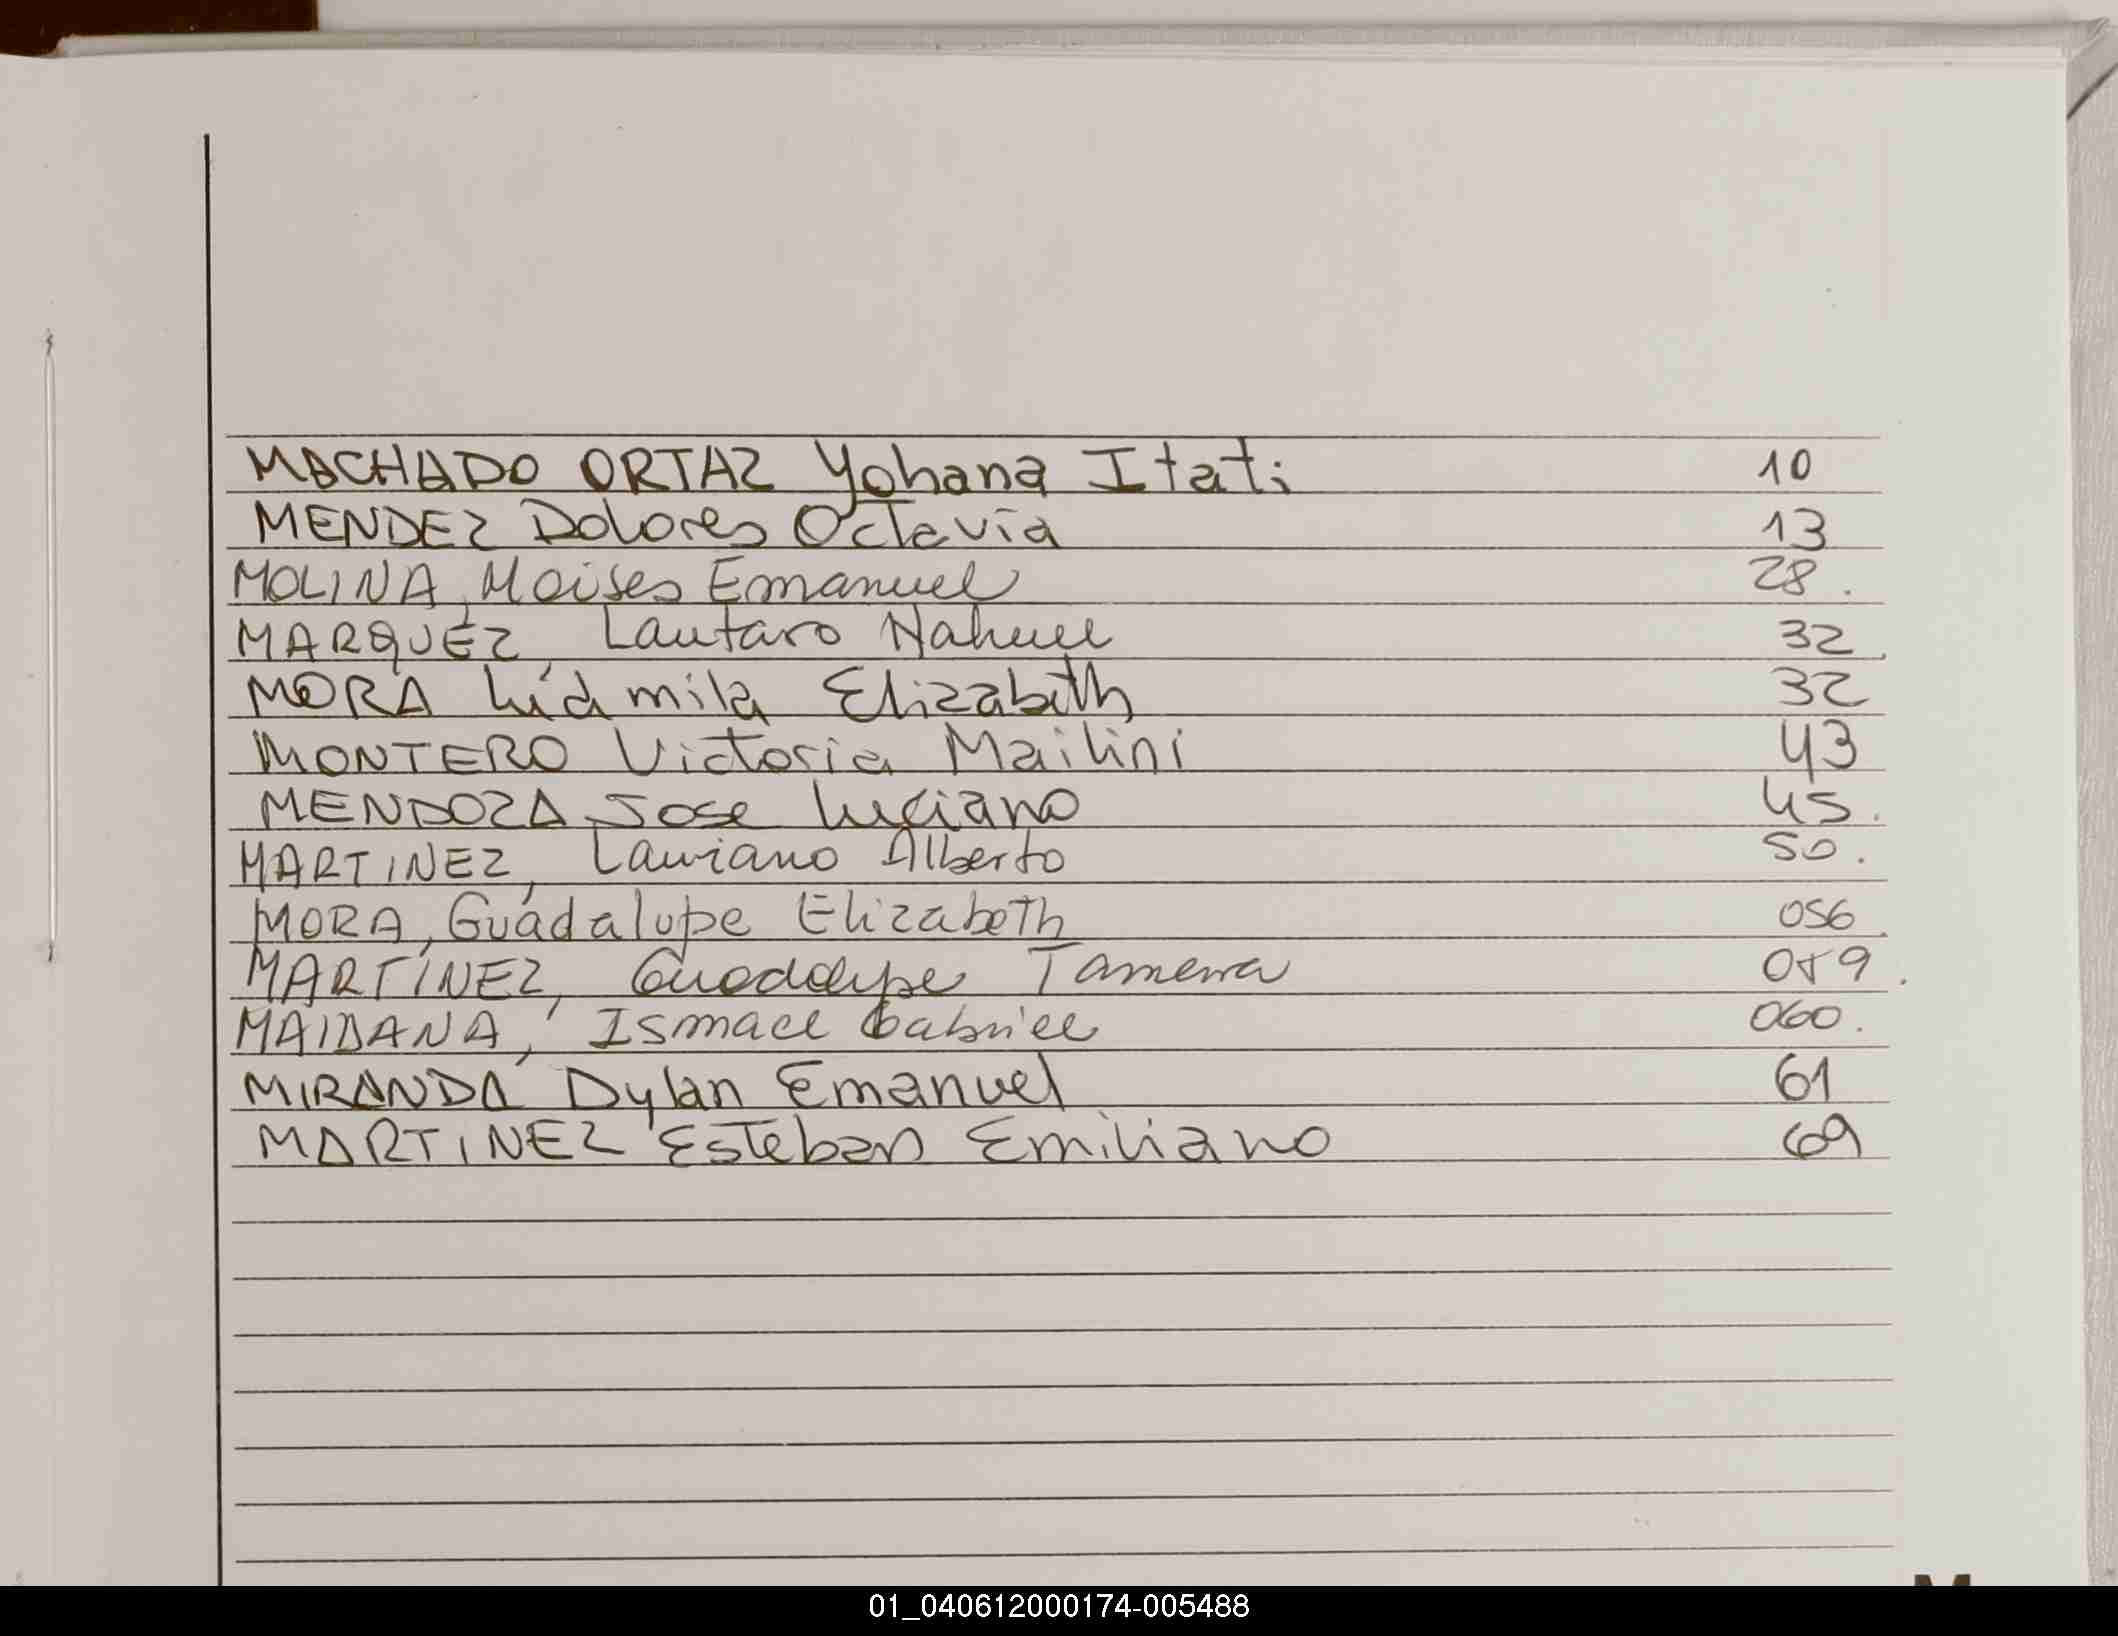 MACHADO ORTAZ Yohana Itati 10
MENDEZ Dolores Octavia 13
MOLINA, Moises Emanuel 28.
MARQUEZ, Lautaro Nahuel 32.
MORA Ludmila Elizabeth 32
MONTERO Victoria Mailini 43
MENDOZA Jose Luciano 45.
MARTINEZ, Lauriano Alberto 50.
MORA, Guadalupe Elizabeth 056.
MARTÍNEZ, Guadalupe Tamerra 059.
MAIDANA, Ismael Gabriel 060.
MIRANDA Dylan Emanuel 61
MARTINEZ Esteban Emiliano 69
M
01_040612000174-005488